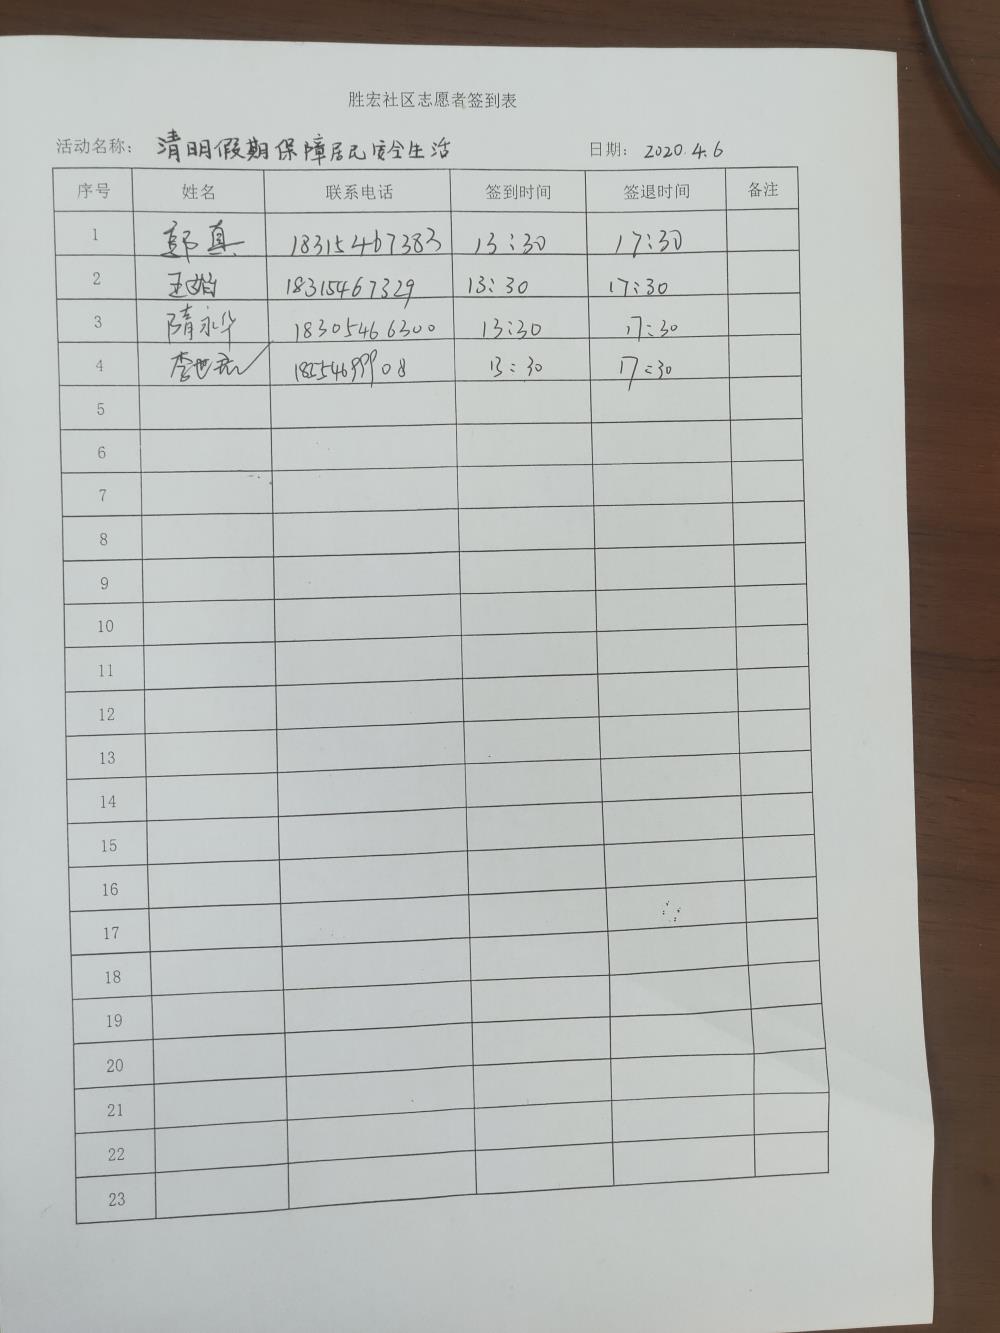 胜宏社区志愿者签到表
活动名称： 清明假期保障居民安全生活 日期： 2020.4.6
序号 姓名 联系电话 签到时间 签退时间 备注
1 郭真 18315467383 13:30 17:30
2 18315467329 13:30 17:30
3 隋永华 18305466300 13:30 17:30
4 13:30 17:30
5
6
7
8
9
10
11
12
13
14
15
16
17
18
19
20
21
22
23